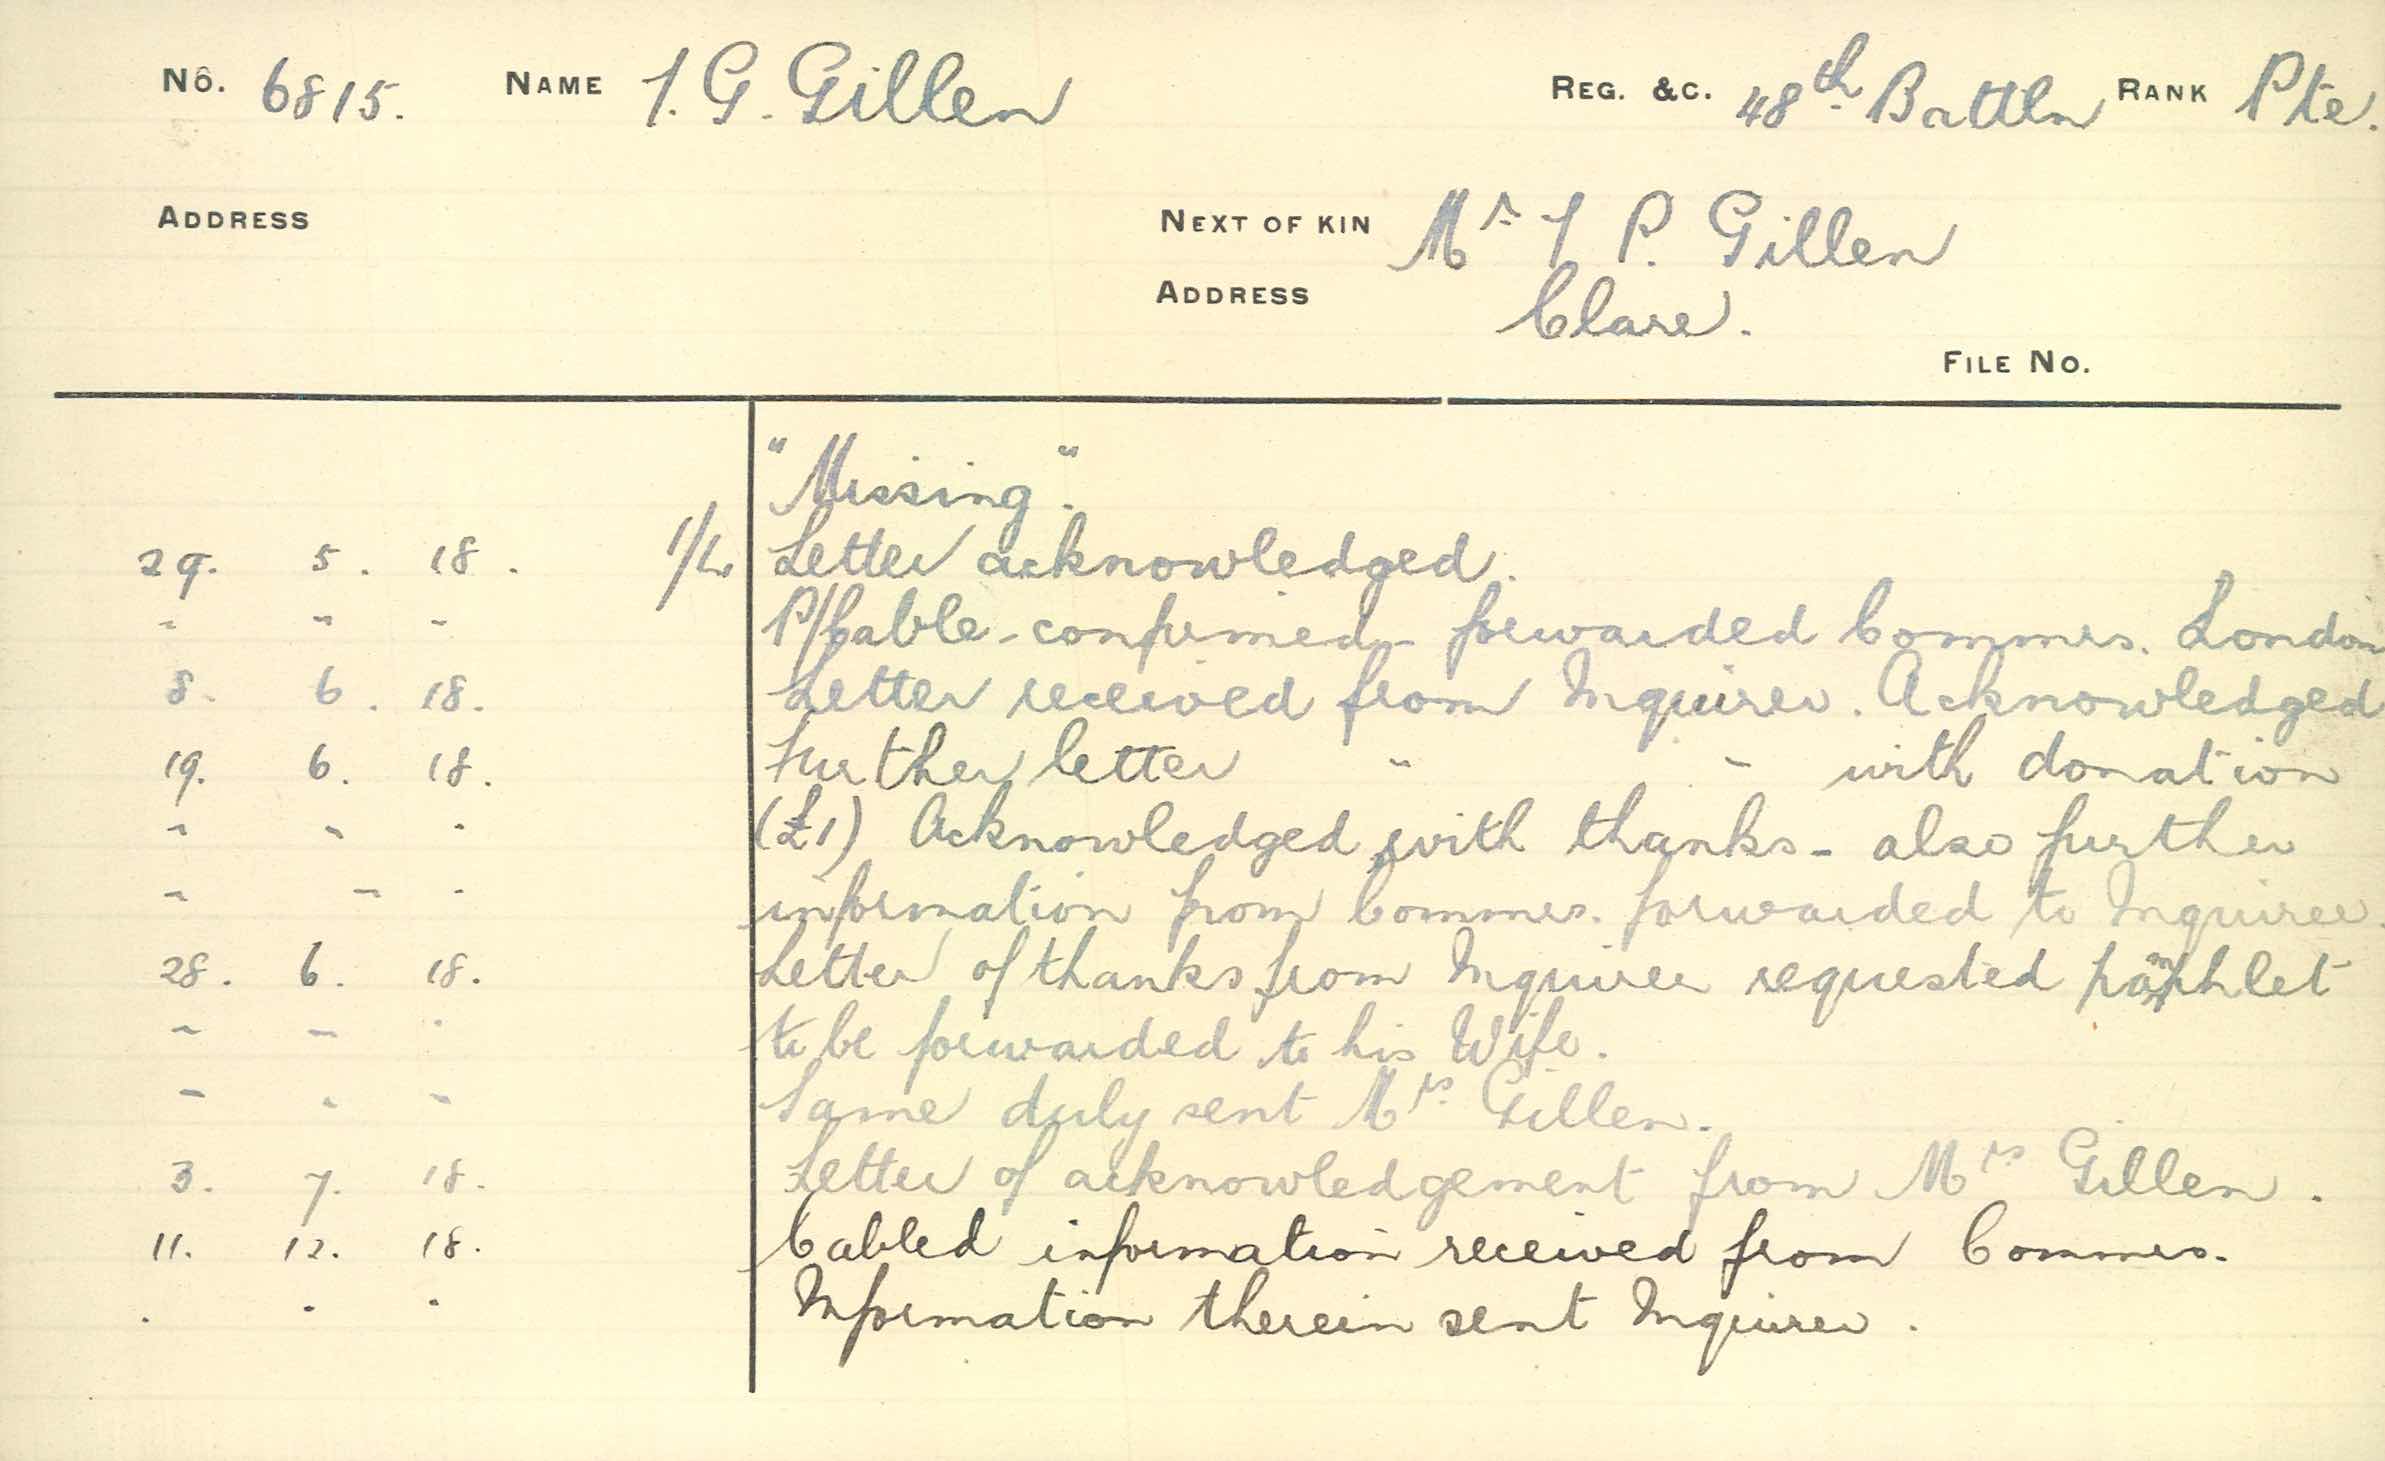 No. 6815. NAME T. G. Gillen REG. &C. 48th Battln RANK Pte.
ADDRESS NEXT OF KIN Mr T P. Gillen
ADDRESS Clare.
FILE No.
"Missing".
29. 5. 18. Letter acknowledged.
" " " P/Cable - confirmed - forwarded Commrs. London
8. 6. 18. Letter received from Inquirer. Acknowledged
19. 6. 18. Further letter " " with donation
" " " (£1) Acknowledged with thanks - also further
" " " information from Commrs. forwarded to Inquirer.
28. 6. 18. Letter of thanks from Inquirer requested pamphlet
" " " to be forwarded to his Wife.
" " " Same duly sent Mrs Gillen.
3. 7. 18. Letter of acknowledgement from Mrs Gillen.
11. 12. 18. Cabled information received from Commrs.
" " " Information therein sent Inquirer.